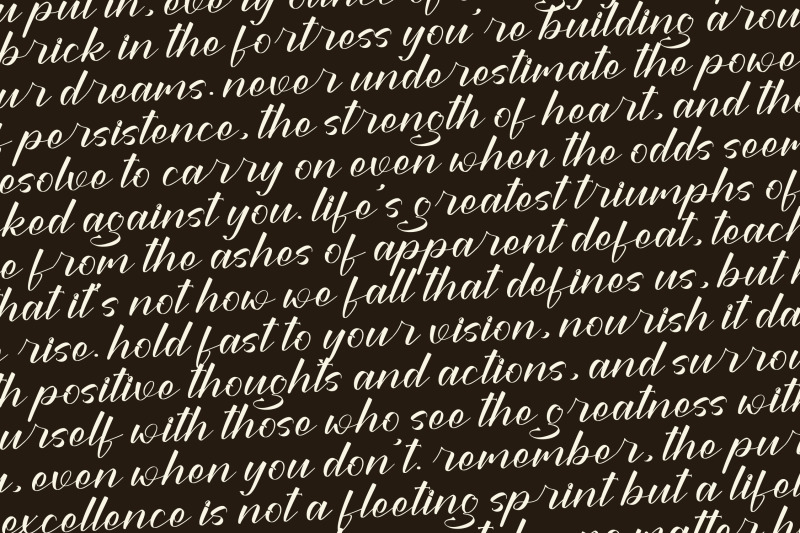 put in, every ounce of
brick in the fortress you're building
ur dreams. never underestimate the
persistence, the strength of heart, and the
esolve to carry on even when the odds seem
ked against you. life's greatest triumphs of
e from the ashes of apparent defeat, teach
that it's not how we fall that defines us, but
rise. hold fast to your vision, nourish it
positive thoughts and actions, and
urself with those who see the greatness with
even when you don't. remember, the
excellence is not a fleeting sprint but a
no matter